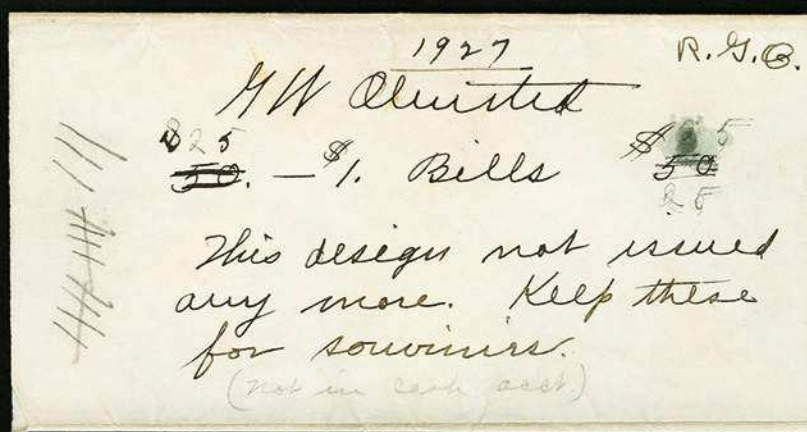 1927
R.G.B.
GW Olmsted
25
50. — $1. Bills $50
25
This design not issued
any more. Keep these
for souvinirs.
(not in cash acct.)